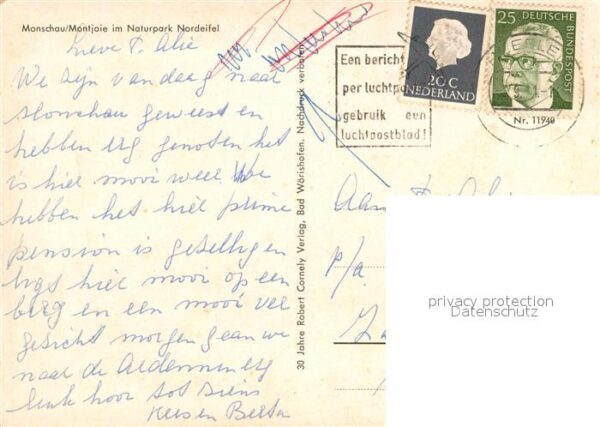 Monschau/Montjoie im Naturpark Nordeifel
Lieve T. Alie
We zijn vandaag naar
Monschau geweest en
hebben erg genoten het
is hier mooi weer We
hebben het hier prima
pension is gezellig en
ligt hier mooi op een
berg en een mooi ver
gezicht morgen gaan we
naar de Ardennen erg
leuk hoor tot ziens
Kees en Berta
30 Jahre Robert Cornely Verlag, Bad Wörishofen. Nachdruck verboten.
Een bericht
per luchtpo
gebruik een
luchtpostblad!
20 C
NEDERLAND
25 DEUTSCHE
BUNDESPOST
Nr. 11940
Aan
p/a
privacy protection
Datenschutz